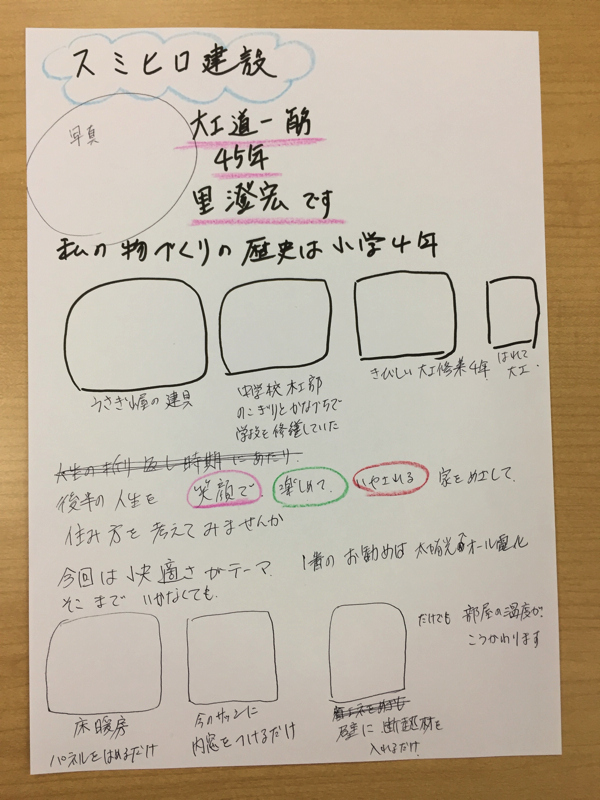 スミヒロ建設
写真
大工道一筋
45年
里 澄宏です
私の物づくりの歴史は小学4年
うさぎ小屋の建具
中学校木工部
のこぎりとかなづちで
学校を修繕していた
きびしい大工修業4年
はれて
大工.
人生の折り返し時期にあたり.
後半の人生を 笑顔で 楽しめて. いやされる 家をめざして.
住み方を考えてみませんか
今回は快適さがテーマ. 1番のお勧めは太陽光でオール電化
そこまでいかなくても.
だけでも 部屋の温度が.
こうかわります
床暖房
パネルをはめるだけ
今のサッシに
内窓をつけるだけ
壁に断熱材を
入れるだけ.